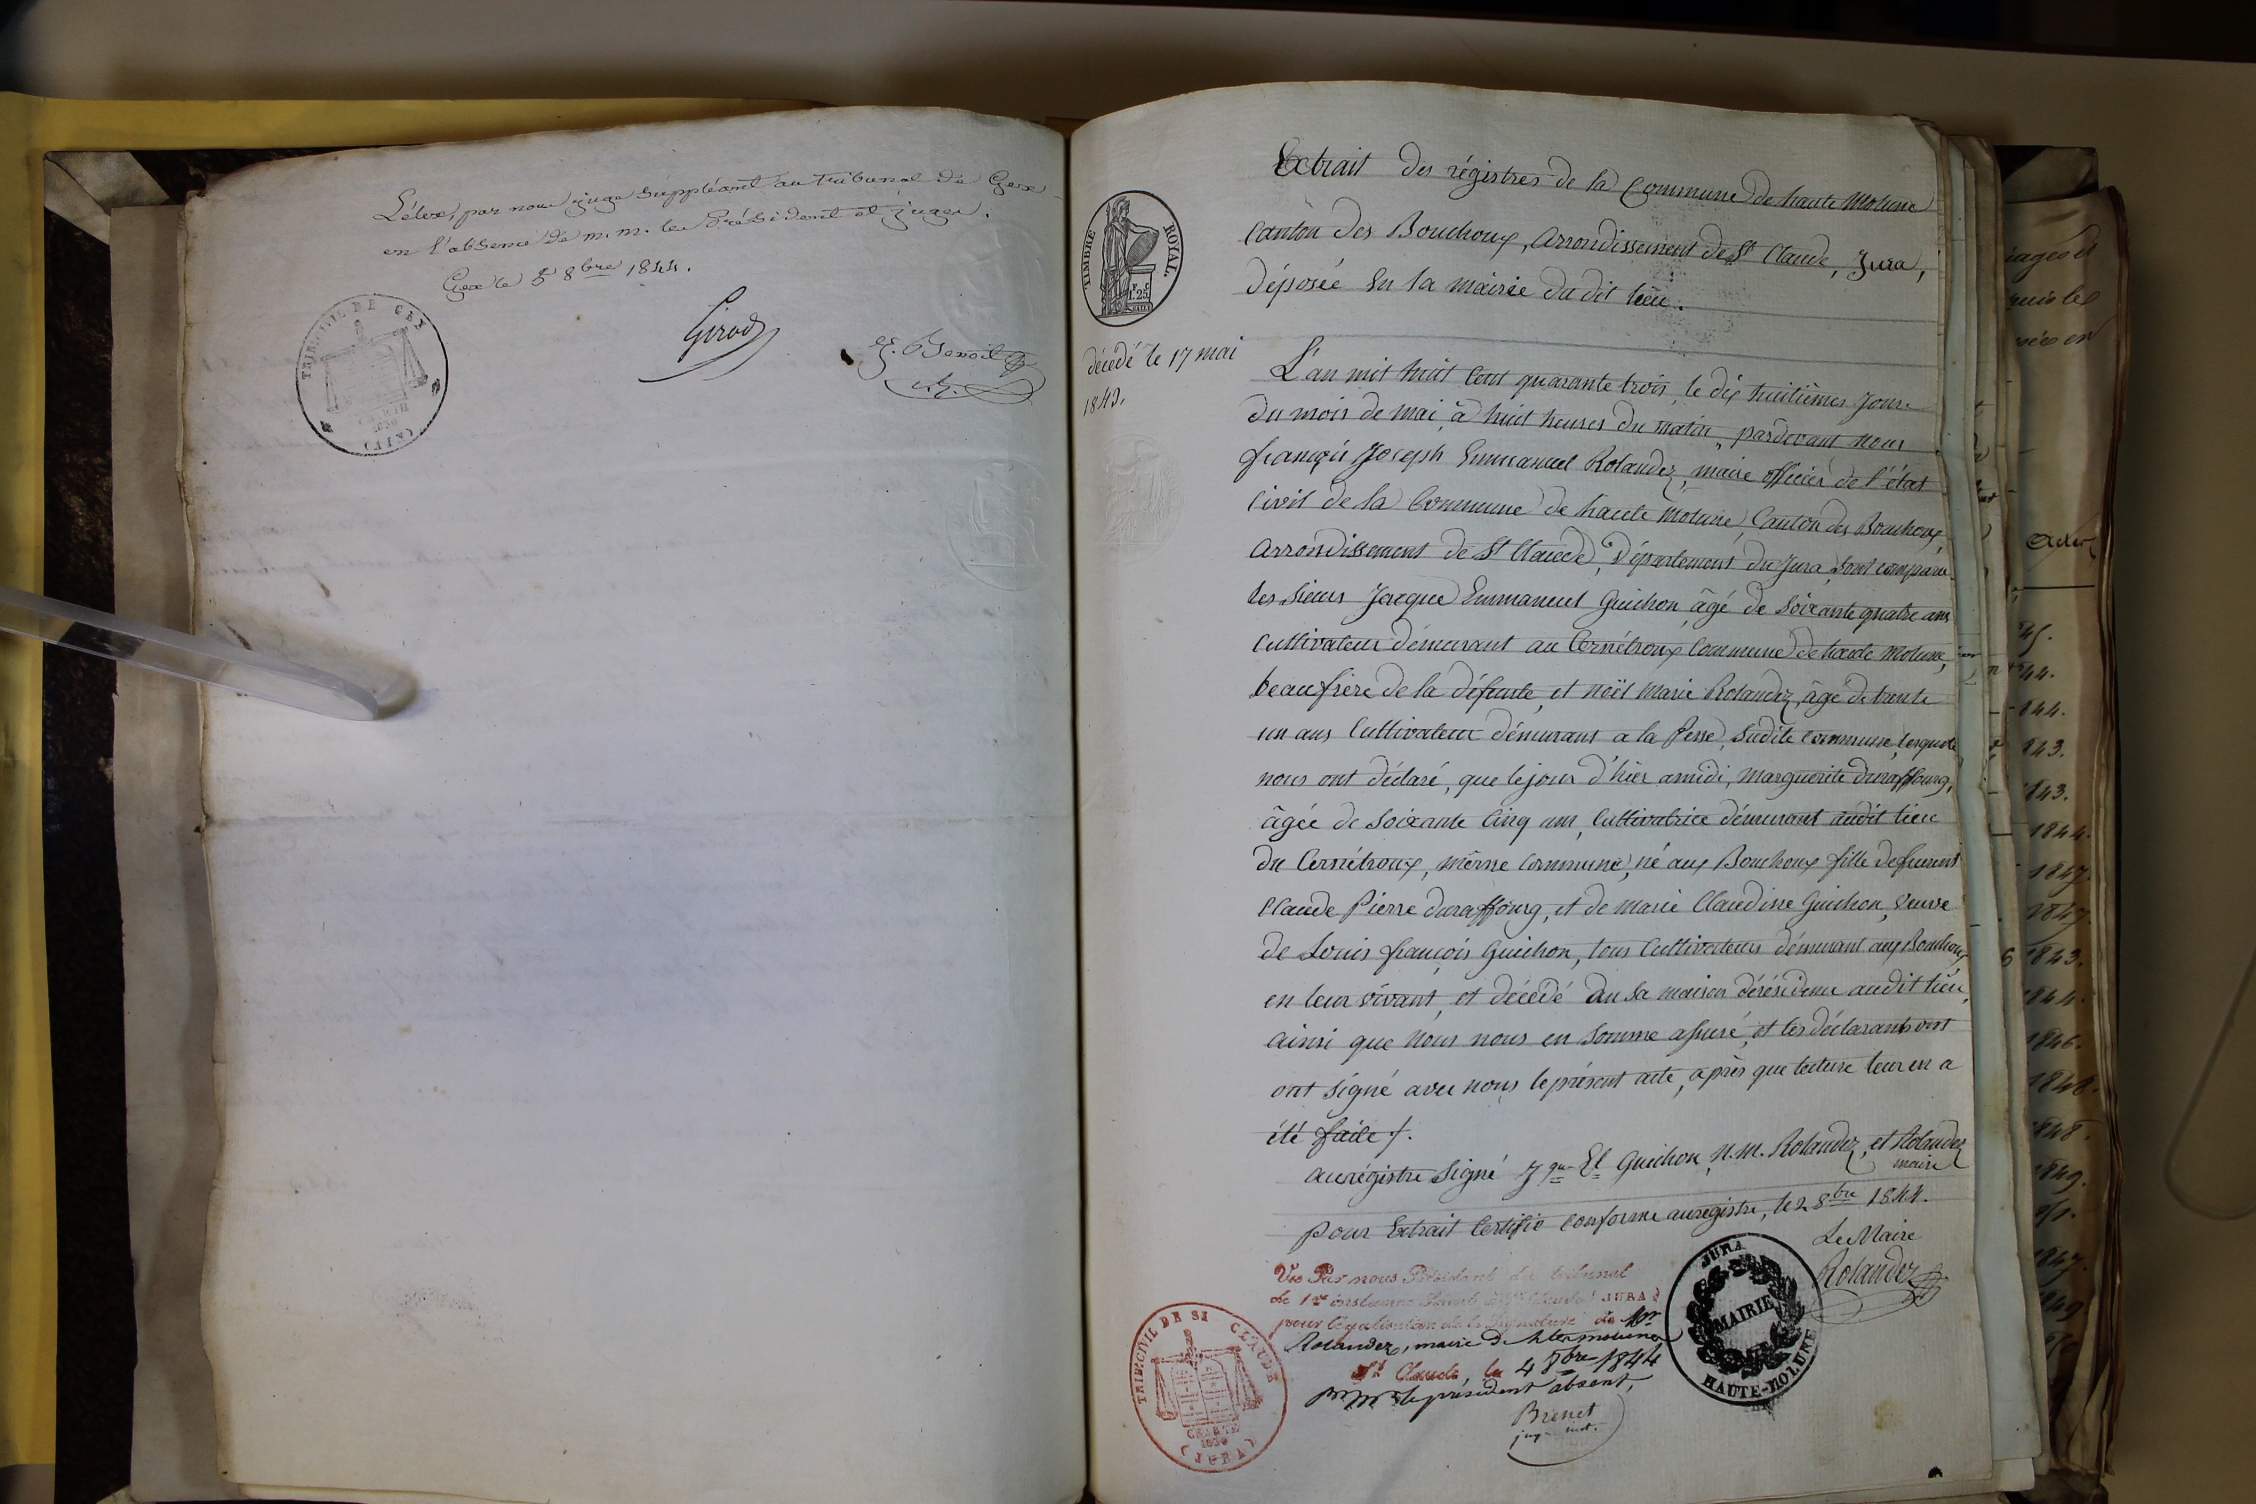 par nous juge suppléant au tribunal de Gex
en l'absence de m.m. les Président et juges.
Gex le 8bre 1844.
TRIB. CIVIL DE GEX
(AIN)
Girod
Benoit
TIMBRE ROYAL.
décédé le 17 mai
1843.
Extrait des régistres de la Commune de haute Molune
Canton des Bouchoux, arrondissement de St Claude, Jura,
déposée en la mairie du dit lieu.
L'an mil huit Cent quarante trois, le dix huitièmes Jour
du mois de mai, à huit heures du matin, pardevant nous
françois Joseph Emmanuel Rolandez, maire officier de l'état
Civil de la Commune de haute molune, Canton des Bouchoux,
arrondissement de St Claude, Département du Jura, sont comparu
les sieurs Jacque Emmanuel Guichon, âgé de soixante quatre ans
Cultivateur démeurant au Cernétroux Commune de haute Molune,
beaufrère de la défunte, et noël Marie Rolandez, âgé de trente
un ans Cultivateur démurans a la Pesse, Sudite commune, lesquels
nous ont déclaré, que lejour d'hier amidi, Marguerite duraffourg,
âgée de soixante Cinq ans, Cultivatrice démeurant audit lieu
du Cernétroux, même commune, né aux Bouchoux fille defunts
Claude Pierre duraffourg, et de marie Claudine Guichon, veuve
de Louis françois Guichon, tous Cultivateurs démurant aux Bouchoux
en leur vivant, et décédé dan sa maison dérésidence audit lieu,
ainsi que nous nous en somme assuré, et les déclarants ont
ont signé avec nous leprésent acte, après que lecture leur en a
été faite /.
aurégistre signé Jque El Guichon, N.M. Rolandez, et Rolandez
maire
pour Extrait Certifié conforme auregistre, le 2 8bre 1844.
Le Maire
Rolandez
JURA
MAIRIE
HAUTE-MOLUNE
Vu Par nous Président du tribunal
de 1re instance JURA
pour légalisation de la signature de Mr
Rolandez, maire de htes molunes
St Claude, le 4 8bre 1844
pr Mr le président absent,
Brenet
TRIB. CIVIL DE ST CLAUDE
CHARTE
1830
(JURA)